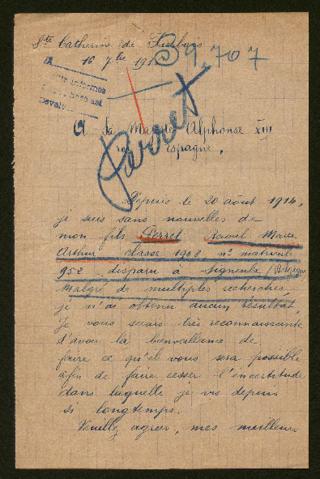 Ste Catherine de
16 7bre 19
59,707
Perret
A Sa Majesté Alphonse XIII
roi Espagne.
Depuis le 20 août 1914,
je suis sans nouvelles de
mon fils Perret Marie
Arthur classe 1908 nº matricule
952 disparu à Signeulx (Belgique
malgré de multiples recherches
je n'ai obtenu aucun résultat.
Je vous serais très reconnaissante
d'avoir la bienveillance de
faire ce qu'il vous sera possible
afin de faire cesser l'incertitude
dans laquelle je vis depuis
si longtemps.
Veuillez agréer, mes meilleurs